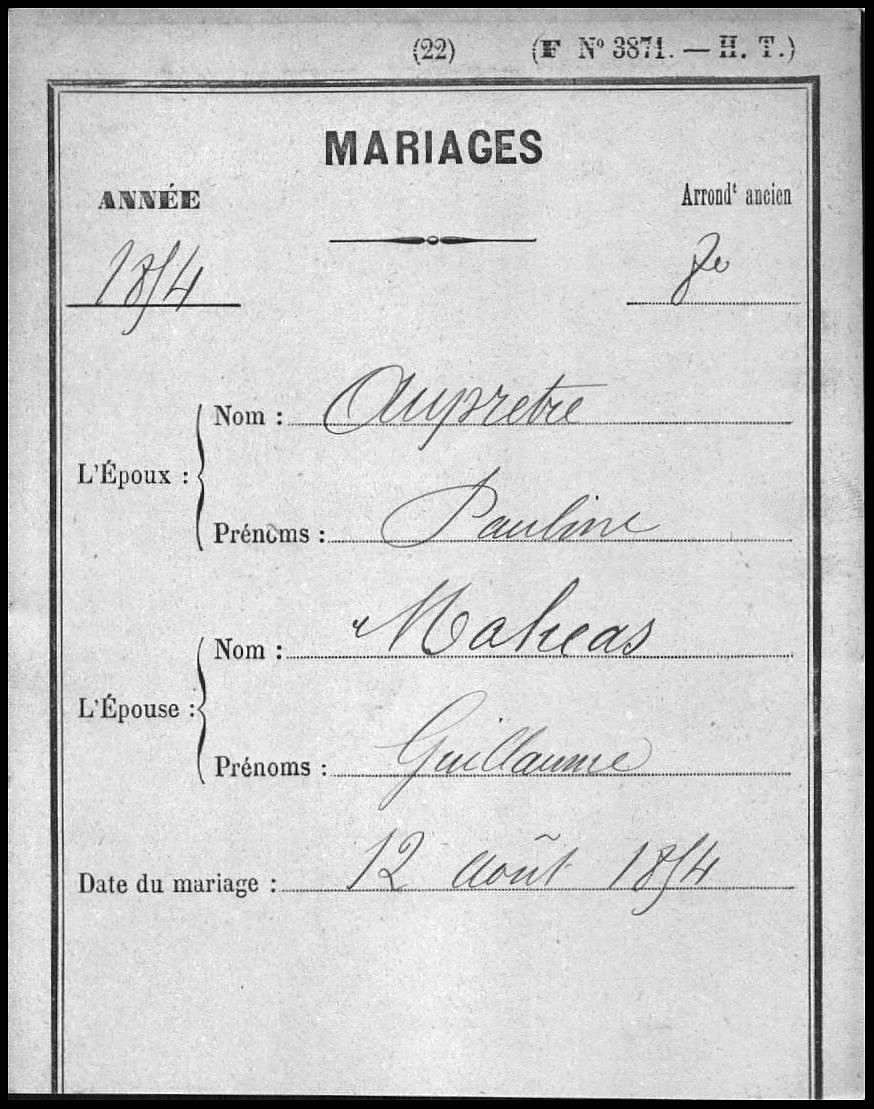 (22) (F Nº 3871. — H. T.)
MARIAGES
ANNÉE
Arrondt ancien
1854
8e
L'Époux :
Nom : Aupretre
Prénoms : Pauline
L'Épouse :
Nom : Maheas
Prénoms : Guillaume
Date du mariage : 12 août 1854